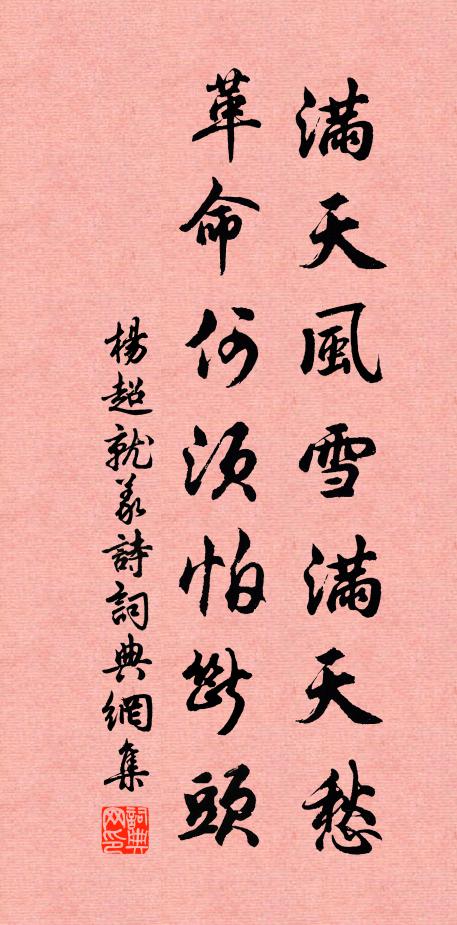 滿天風雪滿天愁
革命何須怕斷頭
楊超就義詩詞典網集
詞典网印